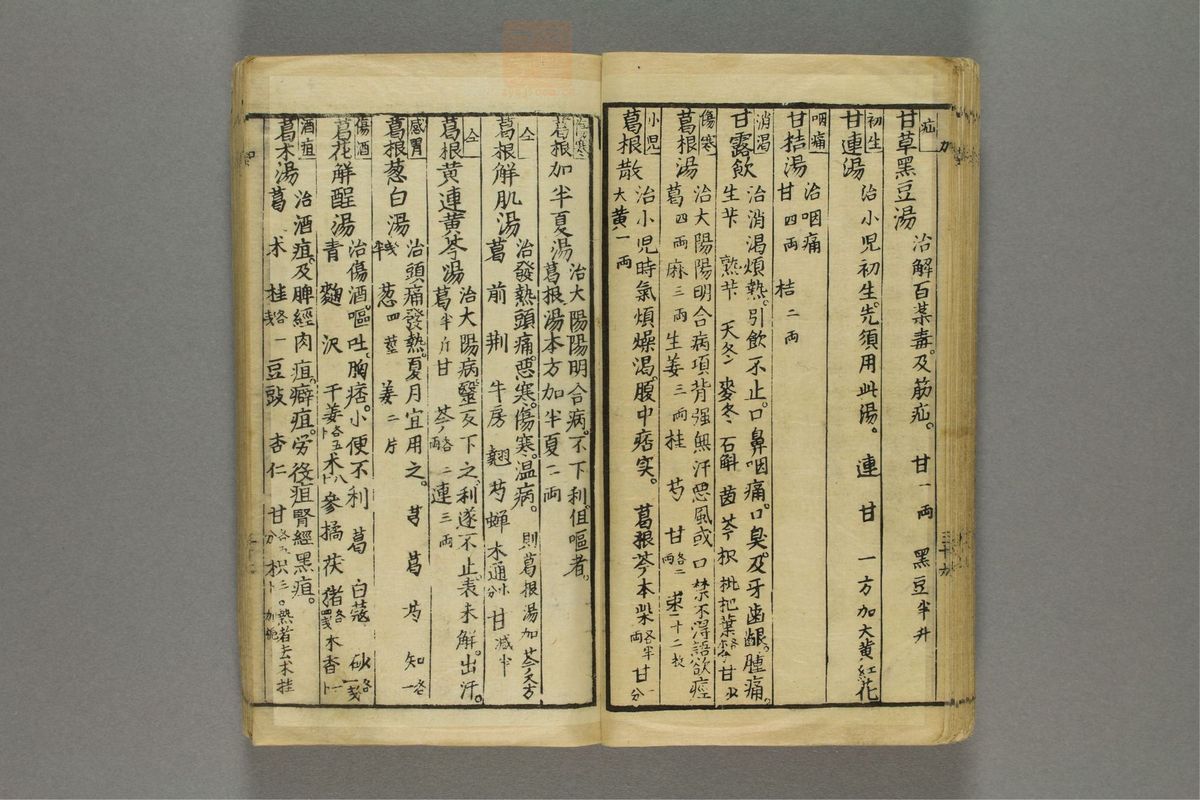 疝
甘草黑豆湯 治解百藥毒。及筋疝。 甘一両 黑豆半升
初生
甘連湯 治小児初生。先須用此湯。 連 甘 一方加大黄紅花
咽痛
甘桔湯 治咽痛
甘四両 桔二両
消渴
甘露飲 治消渴煩熱。引飲不止。口鼻咽痛。口臭。及牙歯齦。腫痛。
生芐 熟芐 天冬 麥冬 石斛 茵 芩 枳 枇杷葉 甘
傷寒
葛根湯 治大陽陽明合病項背强無汗悪風或口禁不得語欲痙
葛四両 麻三両 生姜三両 桂 芍 甘各二両 枣十二枚
小児
葛根散 治小児時氣煩燥渴。腹中痞実。 葛根芩本柴各半両 甘一分
大黄一両
傷寒
葛根加半夏湯 治大陽陽明合病。不下利。但嘔者。
葛根湯本方加半夏一両
仝
葛根解肌湯 治發熱頭痛。悪寒。傷寒。温病。 則葛根湯加芩又方
葛 前 荆 牛房 翹 芍 蝉 木通 甘減半
仝
葛根黄連黄芩湯 治大陽病。醫反下之。利遂不止。表未解。出汗。
葛半斤 甘 芩各二両 連三両
感冒
葛根葱白湯 治頭痛發熱。夏月宜用之。 芎 葛 芍 知各一
戔半 葱四莖 姜二片
傷酒
葛花解酲湯 治傷酒。嘔吐。胸痞。小便不利 葛 白蔻 砂各一戔
青 麹 沢 干姜 朮 參 橘 茯 猪 木香
酒疸
葛朮湯 治酒疸。及脾經肉疸。癖疸。労役疸腎經黑疸。
葛 朮 桂各一戔 豆豉 杏仁 甘 枳 。熱者去朮桂